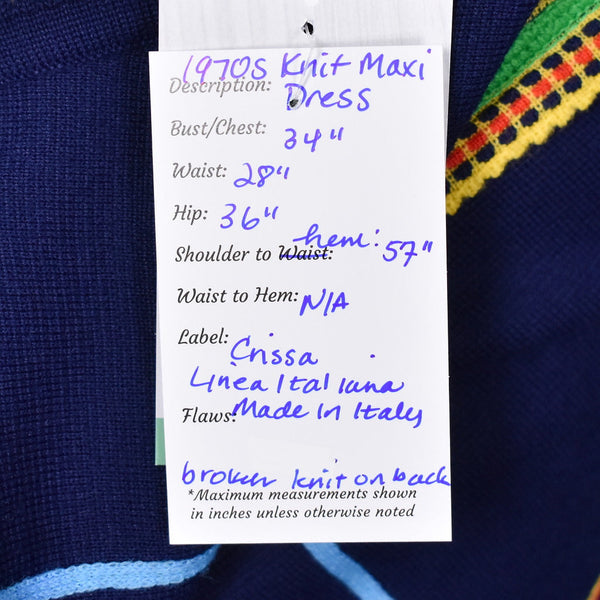 1970s Knit Maxi
Description: Dress
Bust/Chest: 34"
Waist: 28"
Hip: 36"
Shoulder to Waist: hem: 57"
Waist to Hem: N/A
Label: Crissa
Linea Italiana
Flaws: Made in Italy
broken knit on back
*Maximum measurements shown
in inches unless otherwise noted